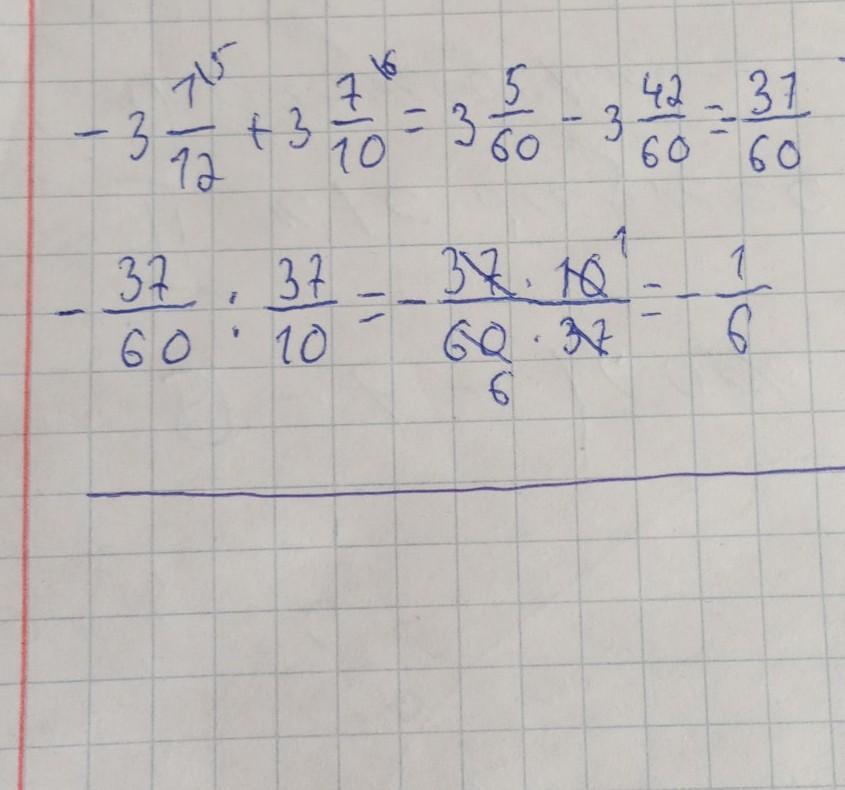 -3 1\5/12 + 3 7\6/10 = 3 5/60 - 3 42/60 = 37/60
- 37/60 : 37/10 = - 37 · 10 1/60 · 37 6 = - 1/6